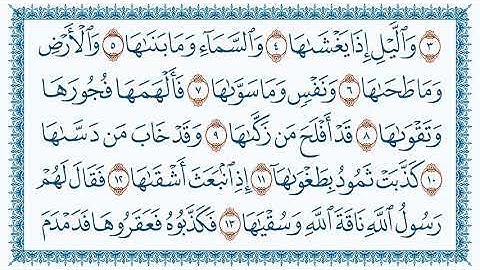 ٣ وَٱلَّيۡلِ إِذَا يَغۡشَىٰهَا ٤ وَٱلسَّمَآءِ وَمَا بَنَىٰهَا ٥ وَٱلۡأَرۡضِ
وَمَا طَحَىٰهَا ٦ وَنَفۡسٖ وَمَا سَوَّىٰهَا ٧ فَأَلۡهَمَهَا فُجُورَهَا
وَتَقۡوَىٰهَا ٨ قَدۡ أَفۡلَحَ مَن زَكَّىٰهَا ٩ وَقَدۡ خَابَ مَن دَسَّىٰهَا
١٠ كَذَّبَتۡ ثَمُودُ بِطَغۡوَىٰهَآ ١١ إِذِ ٱنۢبَعَثَ أَشۡقَىٰهَا ١٢ فَقَالَ لَهُمۡ
رَسُولُ ٱللَّهِ نَاقَةَ ٱللَّهِ وَسُقۡيَٰهَا ١٣ فَكَذَّبُوهُ فَعَقَرُوهَا فَدَمۡدَمَ